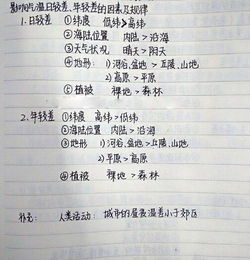 影响气温日较差、年较差的因素及规律
1.日较差 ①纬度 低纬>高纬
②海陆位置 内陆>沿海
③天气状况 晴天>阴天
④地形: 1)河谷、盆地>丘陵、山地
2)高原>平原
⑤植被 裸地>森林
2.年较差 ①纬度 高纬>低纬
②海陆位置 内陆>沿海
③地形 1)河谷、盆地>丘陵、山地
2)平原>高原
④植被 裸地>森林
补充: 人类活动: 城市的昼夜温差小于郊区